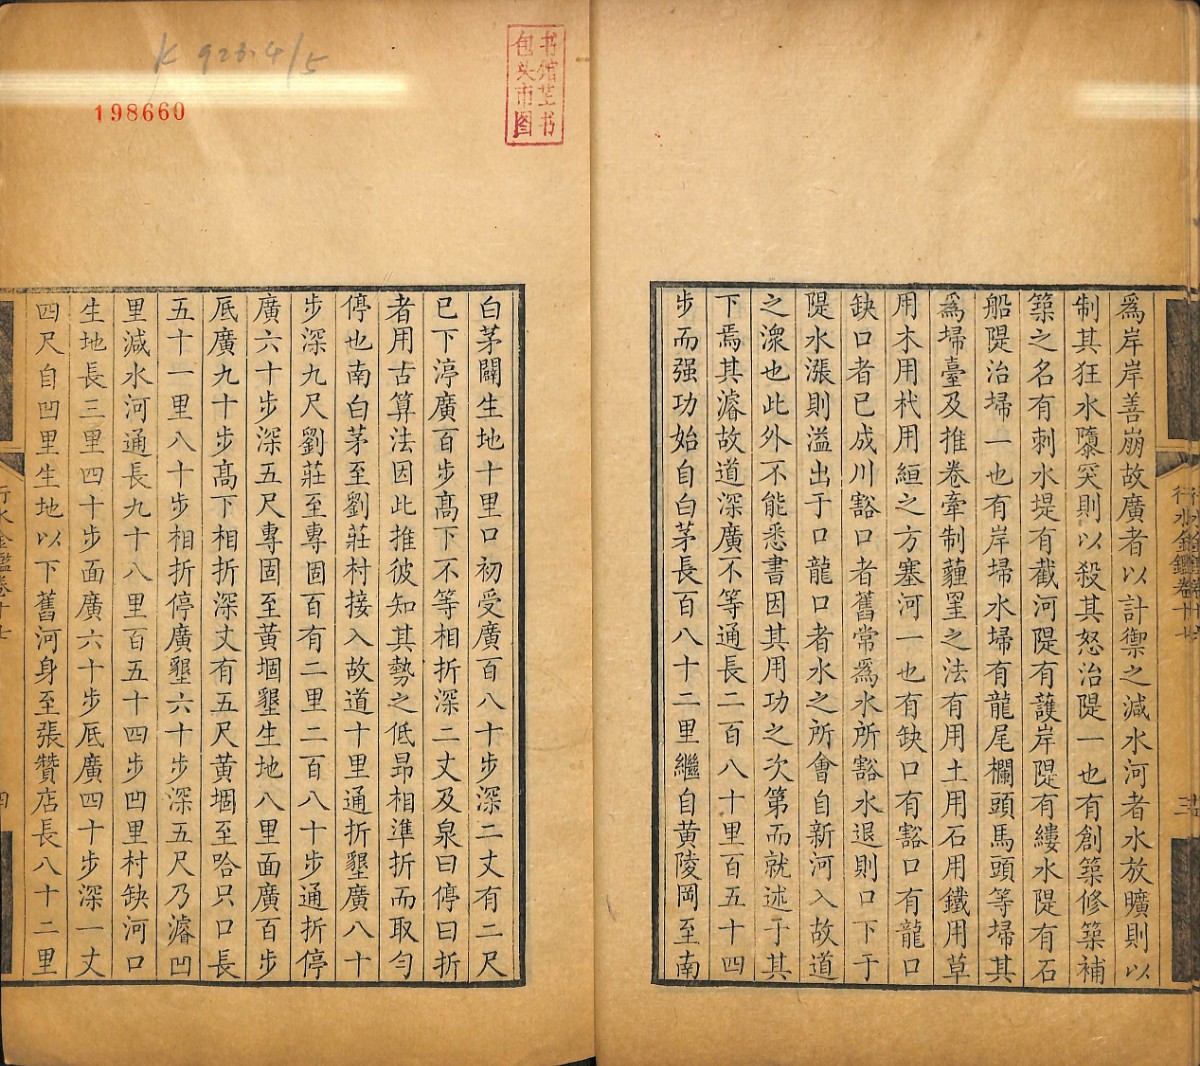 爲岸岸善崩故廣者以計禦之減水河者水放曠則以
制其狂水隳突則以殺其怒治隄一也有創築修築補
築之名有刺水堤有截河隄有護岸隄有縷水隄有石
船隄治埽一也有岸埽水埽有龍尾欄頭馬頭等埽其
爲埽臺及推卷牽制薶罣之法有用土用石用鐵用草
用木用杙用絙之方塞河一也有缺口有豁口有龍口
缺口者已成川豁口者舊常爲水所豁水退則口下于
隄水漲則溢出于口龍口者水之所會自新河入故道
之潨也此外不能悉書因其用功之次第而就述于其
下焉其濬故道深廣不等通長二百八十里百五十四
步而强功始自白茅長百八十二里繼自黃陵岡至南
行水金鑑卷十七
三
白茅闢生地十里口初受廣百八十步深二丈有二尺
已下渟廣百步高下不等相折深二丈及泉曰停曰折
者用古算法因此推彼知其勢之低昻相準折而取勻
停也南白茅至劉莊村接入故道十里通折墾廣八十
步深九尺劉莊至專固百有二里二百八十步通折停
廣六十步深五尺專固至黃堌墾生地八里面廣百步
底廣九十步高下相折深丈有五尺黃堌至哈只口長
五十一里八十步相折停廣墾六十步深五尺乃濬凹
里減水河通長九十八里百五十四步凹里村缺河口
生地長三里四十步面廣六十步底廣四十步深一丈
四尺自凹里生地以下舊河身至張贊店長八十二里
行水金鑑卷十七
四
K 928.4/5
198660
包头市图
书馆芷书